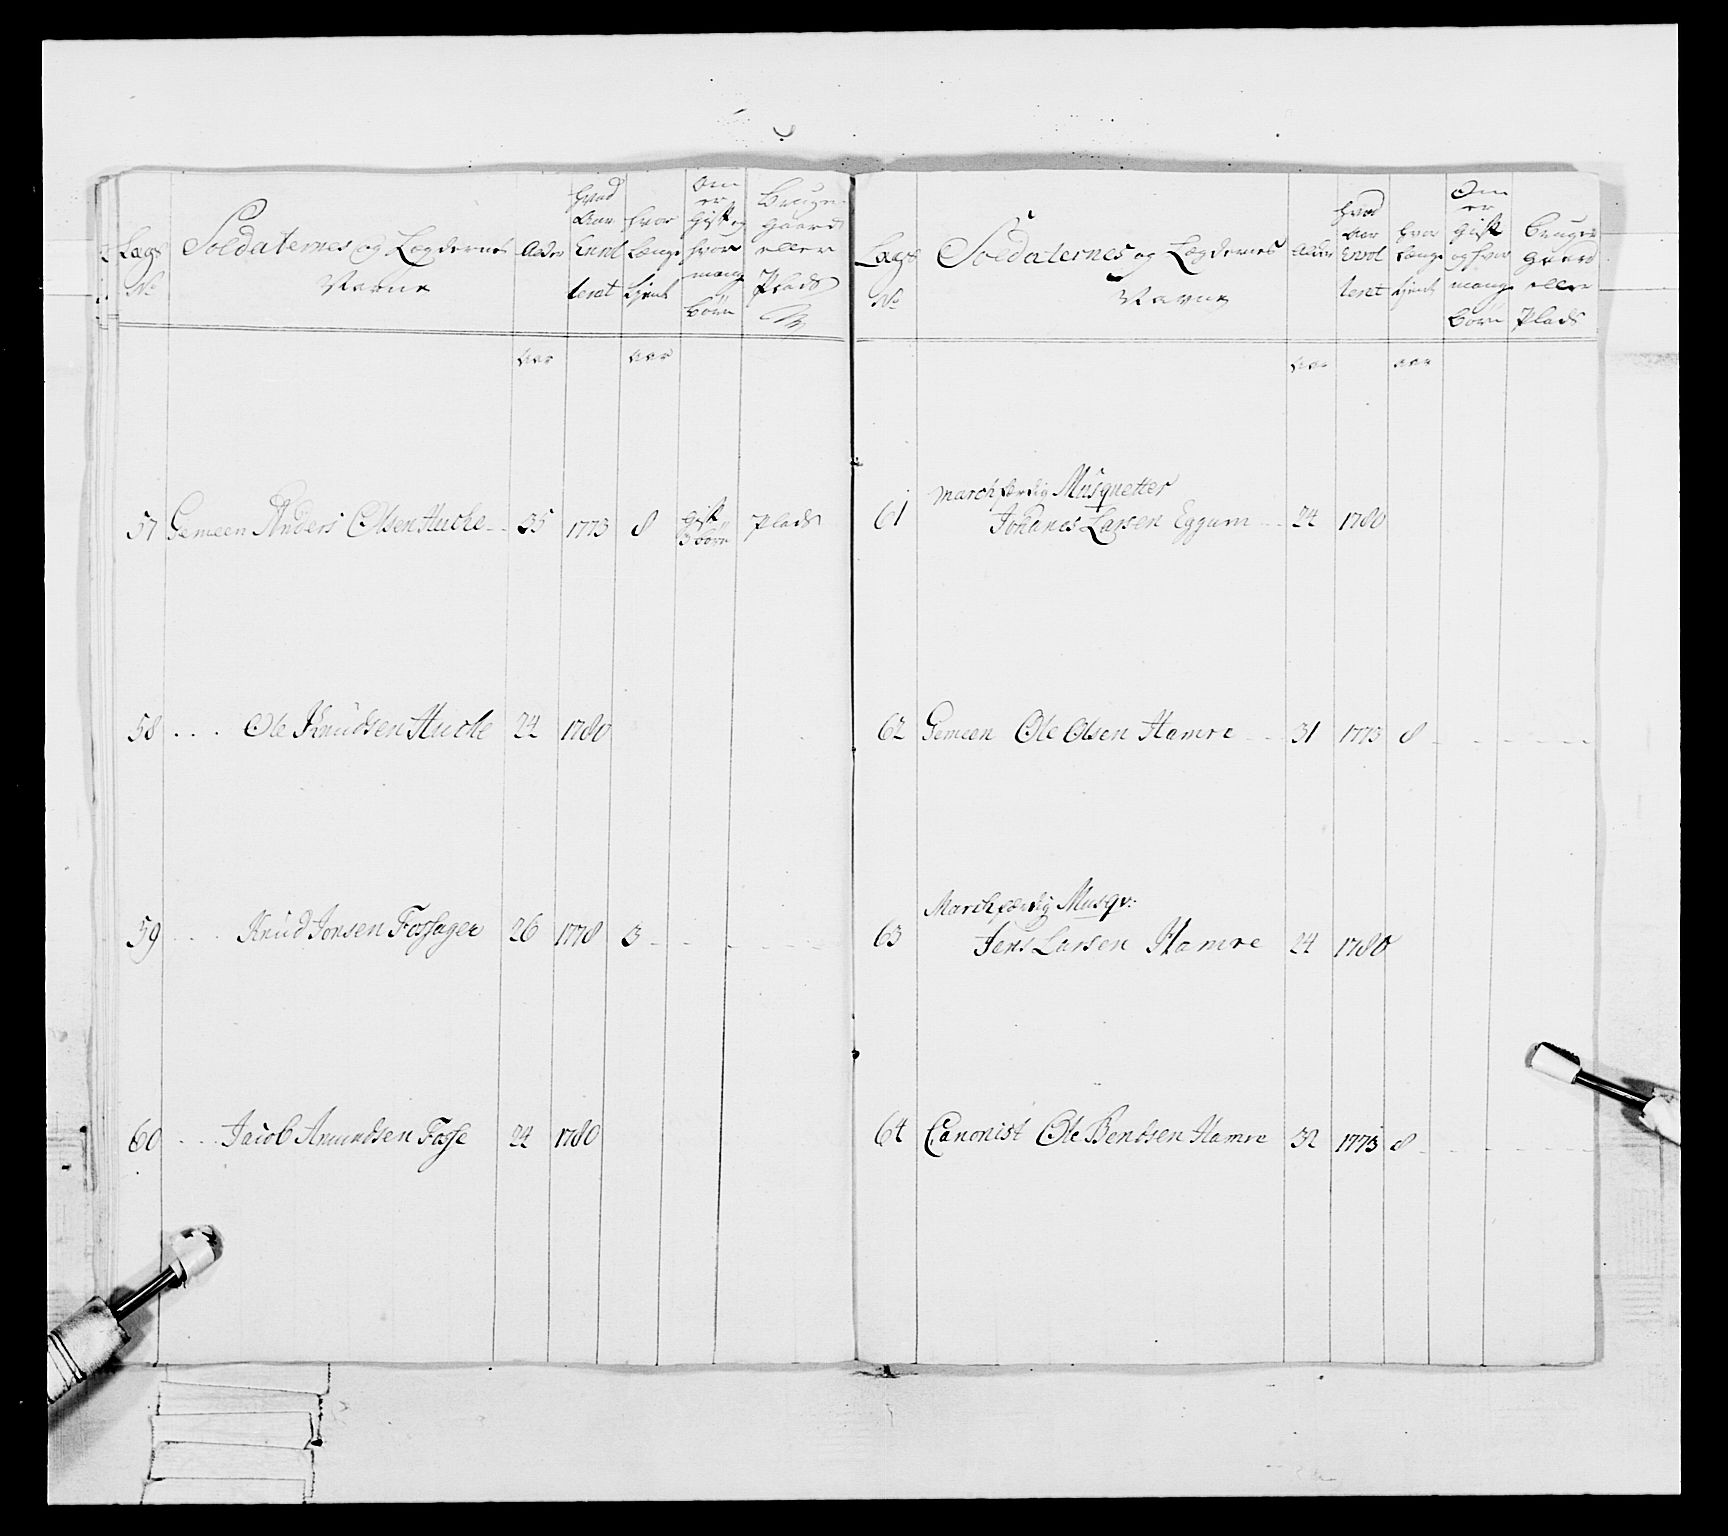 Lægs No
Soldaternes og Lægdernes Navne
Alder
hvad Aar Enrolleret
hvor længe tjent
Om er gift og hvor mang børn
Bruger gaard eller Plads
aar aar
57 Gemeen Anders Olsen Huche 35 1773 8 gift 3 børn Plads
58 Ole Knudsen Huche 24 1780
59 Knud Jonsen Fossager 26 1778 3
60 Jacob Amundsen Fosse 24 1780
Lægs No
Soldaternes og Lægdernes Navne
Alder
hvad Aar Enrolleret
hvor længe tjent
Om er gift og hvor mang børn
Bruger gaard eller Plads
aar aar
marchfærdig Musquetter
61 Johanes Larsen Eggum 24 1780
62 Gemeen Ole Olsen Hamre 31 1773 8
Marchfærdig Musqv:
63 Jens Larsen Hamre 24 1780
64 Canonist Ole Bendsen Hamre 32 1773 8